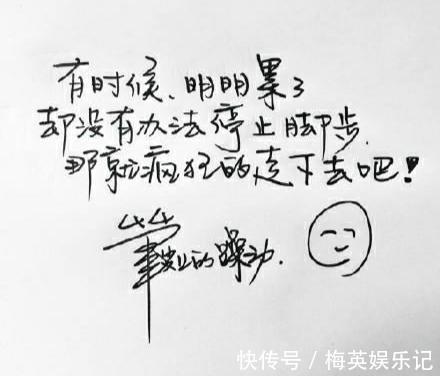 有时候、明明累了
却没有办法停止脚步.
那就疯狂的走下去吧!
的躁动.
快传号/梅英娱乐记